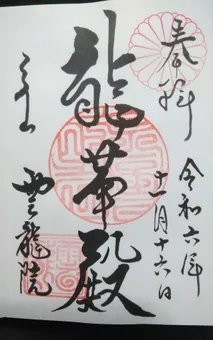 奉拝
令和六年
十一月十六日
龍華殿
雲龍院